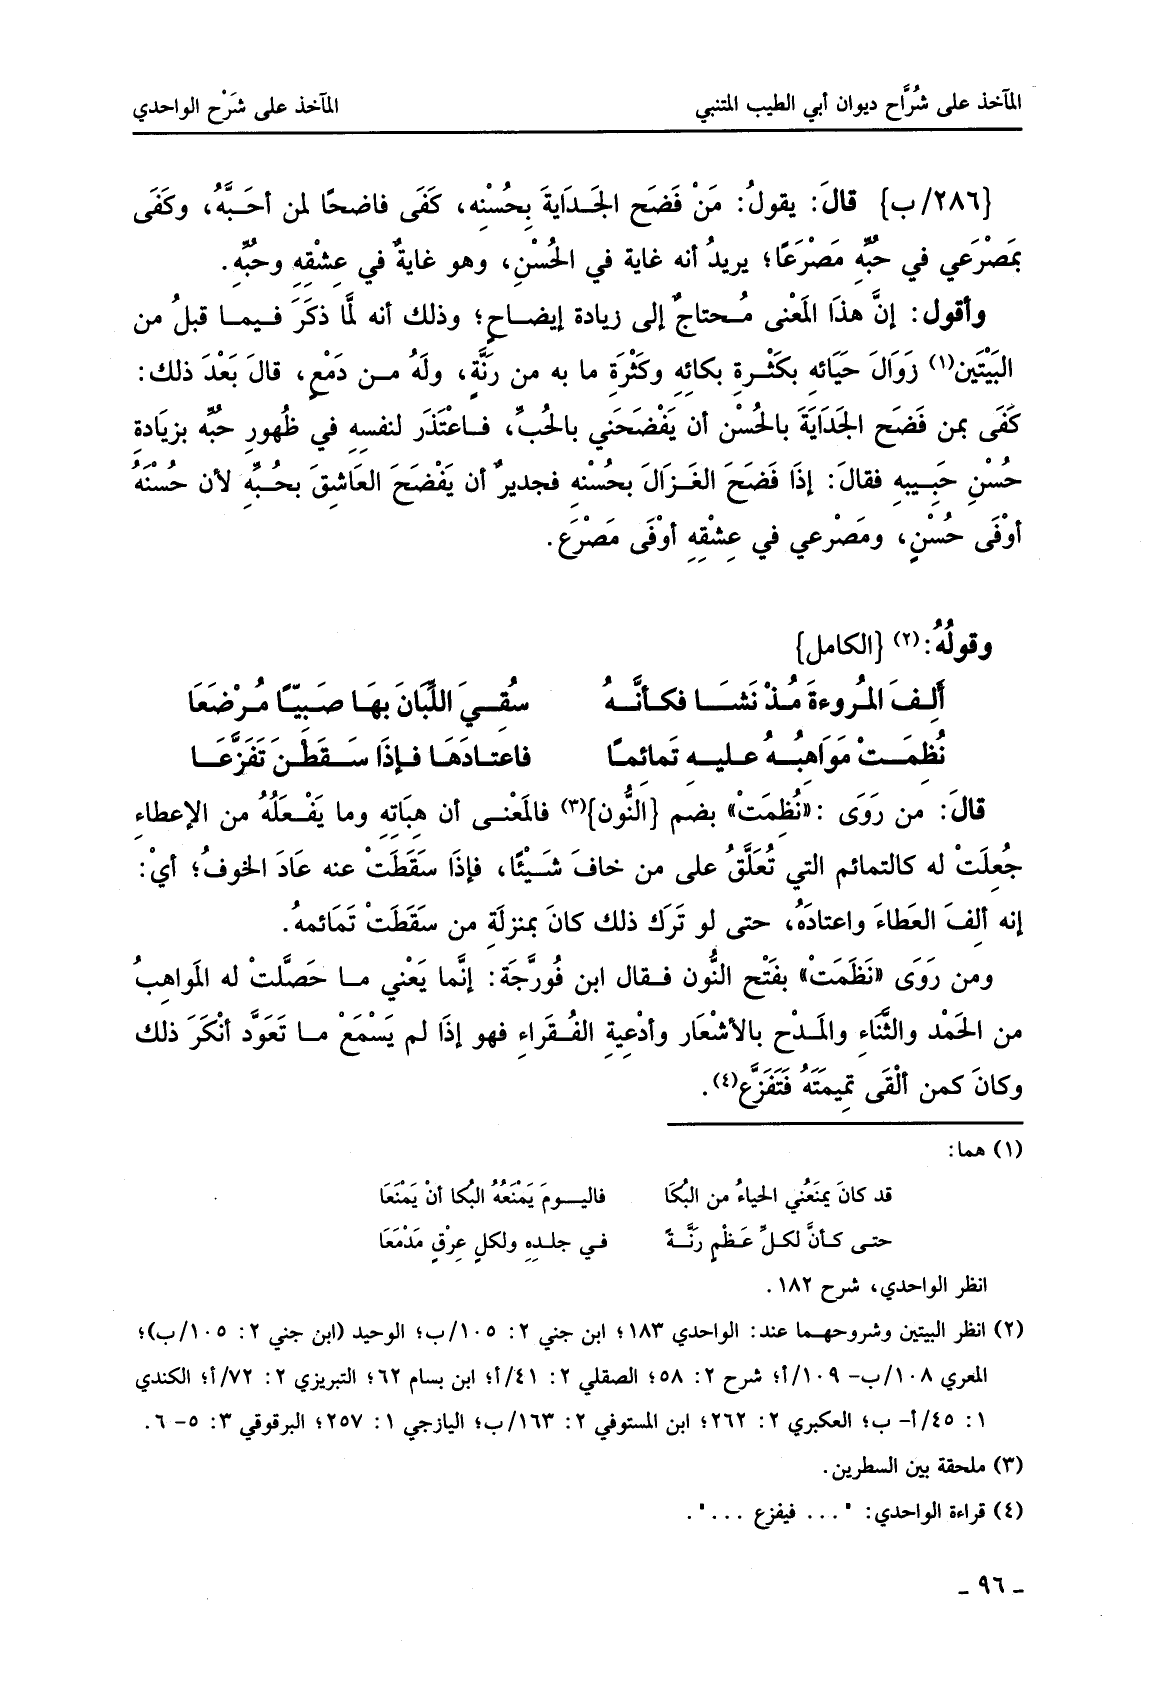 المآخذ على شُرَّاح ديوان أبي الطيب المتنبي المآخذ على شَرْح الواحدي
{٢٨٦/ب} قالَ: يقولُ: مَنْ فَضَح الجَدَايةَ بِحُسْنِه، كَفَى فاضحًا لمن أحَبَّهُ، وكَفَى
بمَصْرَعي في حُبِّه مَصْرَعًا؛ يريدُ أنه غاية في الحُسْنِ، وهو غايةٌ في عِشْقِهِ وحبِّه.
وأقول: إنَّ هذَا المَعْنى مُحتاجٌ إلى زيادة إيضاحٍ؛ وذلك أنه لمَّا ذكَرَ فيما قبلُ من
البَيْتَين(١) زَوَالَ حَيَائه بكَثْرةِ بكائِهِ وكَثْرَةِ ما به من رَنَّةٍ، ولَهُ من دَمْعٍ، قالَ بَعْدَ ذلك:
كَفَى بمن فَضَح الجَدَايَةَ بالحُسْن أن يَفْضَحَني بالحُبِّ، فاعْتَذَر لنفسِهِ في ظُهورِ حبِّه بزيَادةِ
حُسْنِ حَبيبهِ فقالَ: إذَا فَضَحَ الغَزَالَ بحُسْنِه فجديرٌ أن يَفْضَحَ العَاشِقَ بحُبِّهِ لأن حُسْنَهُ
أوْفَى حُسْنٍ، ومَصْرعي في عِشْقِهِ أوْفَى مَصْرَع.
وقولُهُ:(٢) {الكامل}
أَلِفَ المُروءةَ مُذْ نَشَا فكأنَّهُ سُقِيَ اللِّبَانَ بهَا صَبِيّاً مُرْضَعَا
نُظِمَتْ مَوَاهِبُهُ عليه تَمائمًا فاعتادَهَا فإذَا سَقَطْنَ تَفَزَّعَا
قالَ: من رَوَى :«نُظِمَتْ» بضم {النُّون}(٣) فالمَعْنى أن هِبَاتِهِ وما يَفْعَلُهُ من الإعطاءِ
جُعِلَتْ له كالتمائم التي تُعَلَّقُ على من خافَ شَيْئًا، فإذَا سَقَطَتْ عنه عَادَ الخوفُ؛ أيْ:
إنه ألِفَ العَطاءَ واعتادَهُ، حتى لو تَرَك ذلك كانَ بمنزلَةِ من سَقَطَتْ تَمَائمهُ.
ومن رَوَى «نَظَمَتْ» بفَتْح النُّون فقال ابن فُورَّجَة: إنَّما يَعْني ما حَصَّلَتْ له المَواهبُ
من الحَمْد والثَّنَاءِ والمَدْح بالأشْعَار وأدْعِيةِ الفُقَراءِ فهو إذَا لم يَسْمَعْ ما تَعَوَّد أنْكَرَ ذلك
وكانَ كمن ألْقَى تميمَتَهُ فَتَفَزَّع(٤).
(١) هما:
قد كانَ يمنَعُني الحياءُ من البُكَا فاليومَ يَمْنَعُهُ البُكا أنْ يَمْنَعَا
حتى كأنَّ لكلِّ عَظْمٍ رَنَّةً في جلدِهِ ولكلِ عِرْقٍ مَدْمَعَا
انظر الواحدي، شرح ١٨٢.
(٢) انظر البيتين وشروحهما عند: الواحدي ١٨٣؛ ابن جني ٢: ١٠٥/ب؛ الوحيد (ابن جني ٢: ١٠٥/ب)؛
المعري ١٠٨/ب- ١٠٩/أ؛ شرح ٢: ٥٨؛ الصقلي ٢: ٤١/أ؛ ابن بسام ٦٢؛ التبريزي ٢: ٧٢/أ؛ الكندي
١: ٤٥/أ- ب؛ العكبري ٢: ٢٦٢؛ ابن المستوفي ٢: ١٦٣/ب؛ اليازجي ١: ٢٥٧؛ البرقوقي ٣: ٥- ٦.
(٣) ملحقة بين السطرين.
(٤) قراءة الواحدي: "... فيفزع ...".
- ٩٦ -